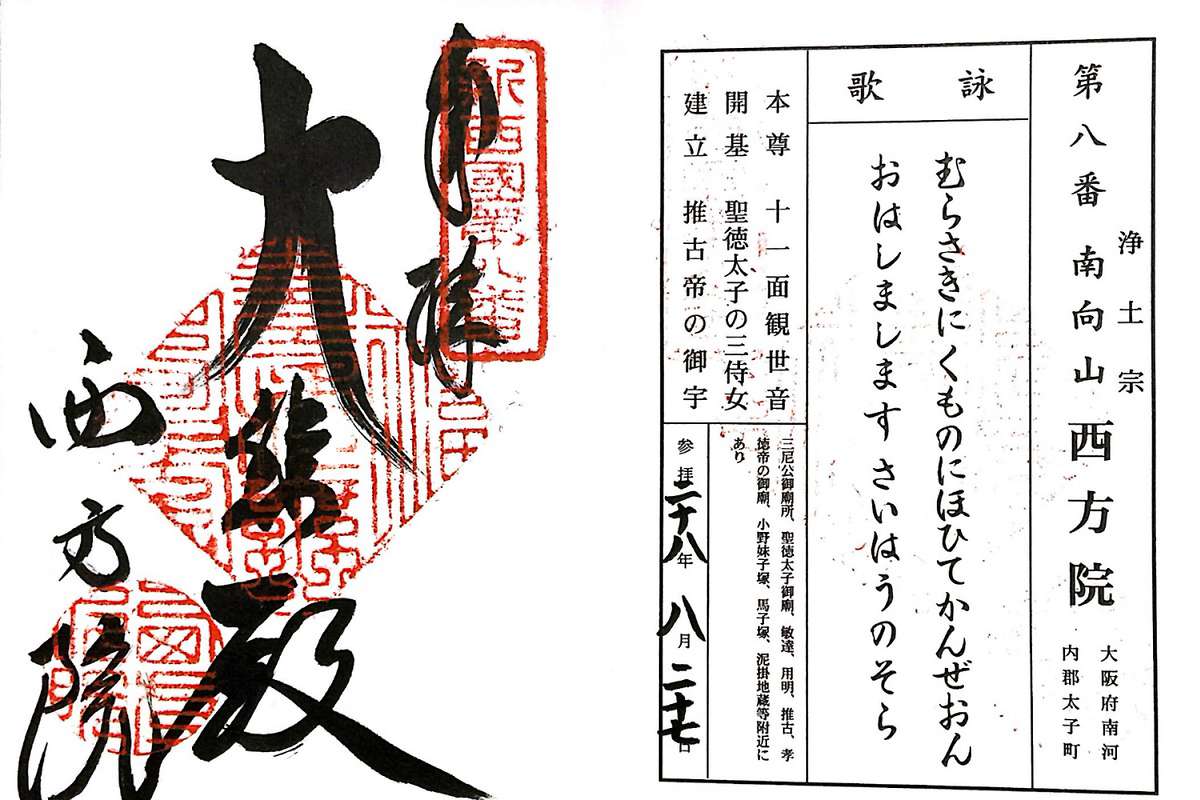 第八番 南向山 西方院
浄土宗
大阪府南河
内郡太子町
詠歌
むらさきにくものにほひてかんぜおん
おはしましますさいはうのそら
本尊 十一面観世音
開基 聖徳太子の三侍女
建立 推古帝の御宇
三尼公御廟所、聖徳太子御廟、敏達、用明、推古、孝
徳帝の御廟、小野妹子塚、馬子塚、泥掛地蔵等附近に
あり
参拝二十八年 八月二十七日
奉拝
新西國第八番
大悲殿
西方院